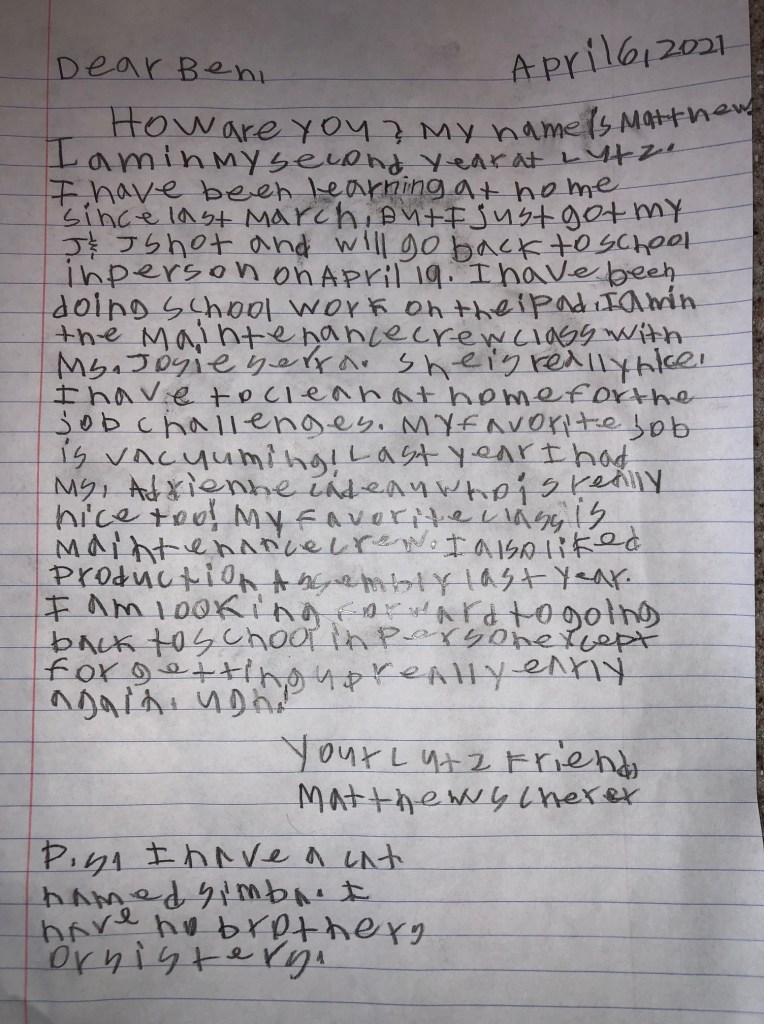 Dear Ben, April 6, 2021
How are you? My name is Matthew
I am in my second year at Lutz.
I have been learning at home
since last March, but I just got my
J & J shot and will go back to school
in person on April 19. I have been
doing school work on the ipad. I am in
the Maintenance crew class with
Ms. Josie Serra. She is really nice.
I have to clean at home for the
job challenges. My favorite job
is vacuuming! Last year I had
Ms. Adrienne Cadeau who is really
nice too! My favorite class is
Maintenance crew. I also liked
Production Assembly last year.
I am looking forward to going
back to school in person except
for getting up really early
again. ugh!
Your Lutz Friend,
Matthew Scherer
P.S. I have a cat
named Simba. I
have no brothers
or sisters.